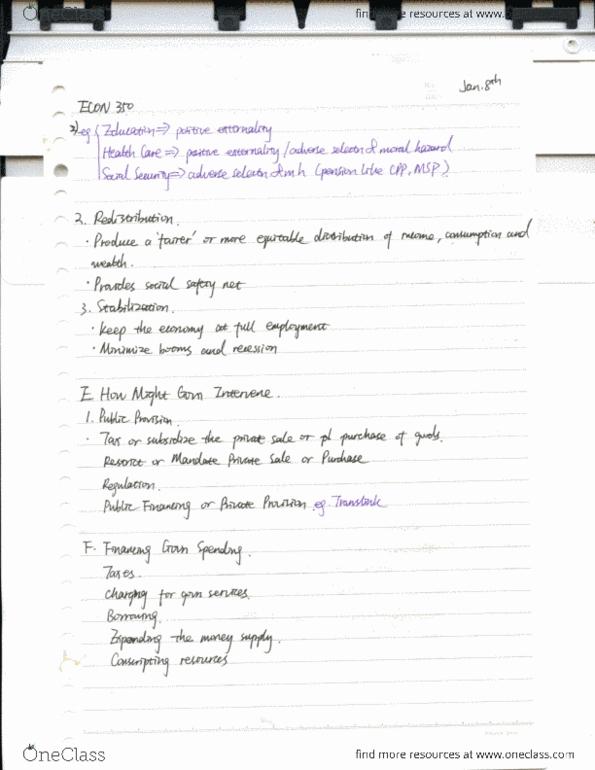 OneClass find more resources at www.
Jan. 8th
ECON 350
eg { Education => positive externality
Health Care => positive externality / adverse selectn & moral hazard
Social Security => adverse selectn & m.h (pension like CPP, MSP)
2. Redistribution.
· Produce a 'fairer' or more equitable distribution of income, consumption and
wealth.
· Provides social safety net
3. Stabilization.
· Keep the economy at full employment
· Minimize booms and recession
E. How Might Govn Intervene.
1. Public Provision.
· Tax or subsidize the private sale or purchase of goods.
Restrict or Mandate Private Sale or Purchase
Regulation.
Public Financing or Private Provision eg. Translink
F. Financing Govn Spending.
Taxes.
Charging for govn services.
Borrowing.
Expanding the money supply.
Conscripting resources
OneClass find more resources at www.oneclass.com